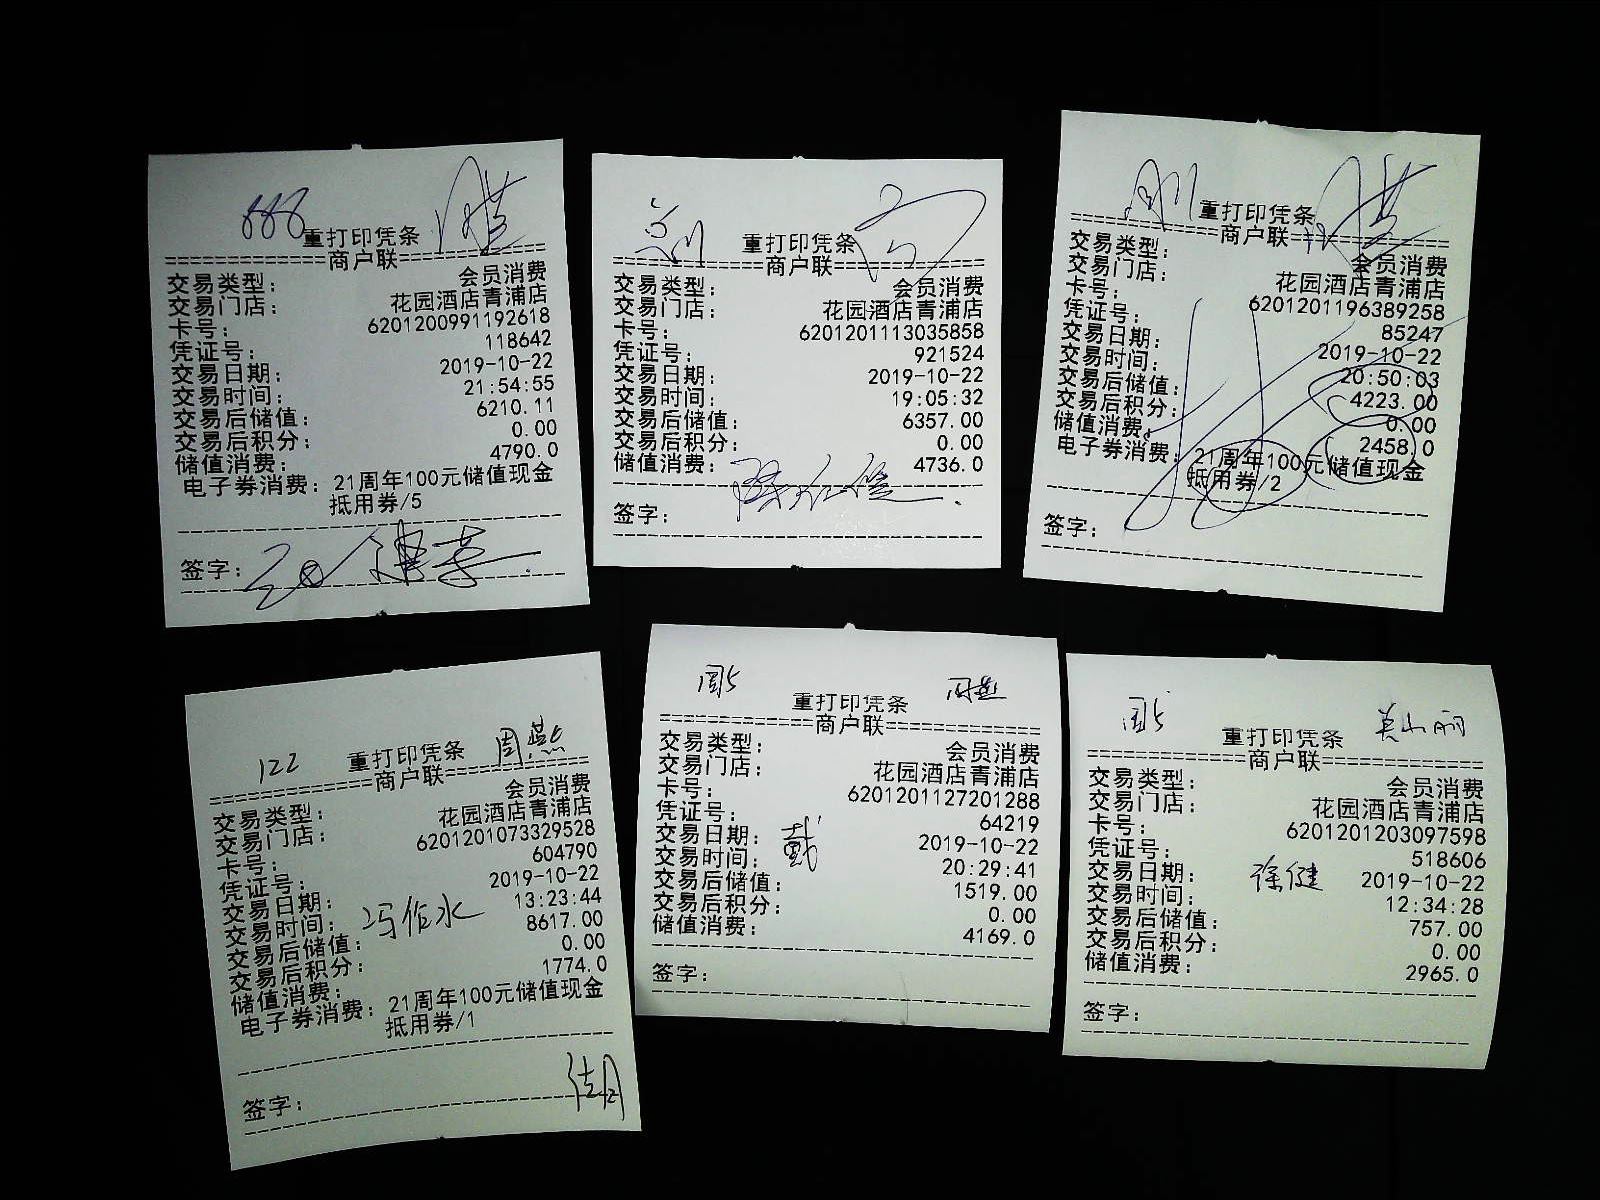 888
重打印凭条
商户联
交易类型： 会员消费
交易门店： 花园酒店青浦店
卡号： 6201200991192618
凭证号： 118642
交易日期： 2019-10-22
交易时间： 21:54:55
交易后储值： 6210.11
交易后积分： 0.00
储值消费： 4790.0
电子券消费：21周年100元储值现金
抵用券/5
签字：
重打印凭条
商户联
交易类型： 会员消费
交易门店： 花园酒店青浦店
卡号： 6201201113035858
凭证号： 921524
交易日期： 2019-10-22
交易时间： 19:05:32
交易后储值： 6357.00
交易后积分： 0.00
储值消费： 4736.0
签字：
重打印凭条
商户联
交易类型： 会员消费
交易门店： 花园酒店青浦店
卡号： 6201201196389258
凭证号： 85247
交易日期： 2019-10-22
交易时间： 20:50:03
交易后储值： 4223.00
交易后积分： 0.00
储值消费： 2458.0
电子券消费：21周年100元储值现金
抵用券/2
签字：
122 重打印凭条 周燕
商户联
交易类型： 会员消费
交易门店： 花园酒店青浦店
卡号： 6201201073329528
凭证号： 604790
交易日期： 2019-10-22
交易时间： 13:23:44
冯作水
交易后储值： 8617.00
交易后积分： 0.00
储值消费： 1774.0
电子券消费：21周年100元储值现金
抵用券/1
签字：
重打印凭条 周燕
商户联
交易类型： 会员消费
交易门店： 花园酒店青浦店
卡号： 6201201127201288
凭证号： 64219
交易日期： 2019-10-22
戴
交易时间： 20:29:41
交易后储值： 1519.00
交易后积分： 0.00
储值消费： 4169.0
签字：
重打印凭条
商户联
交易类型： 会员消费
交易门店： 花园酒店青浦店
卡号： 6201201203097598
凭证号： 518606
交易日期： 徐健 2019-10-22
交易时间： 12:34:28
交易后储值： 757.00
交易后积分： 0.00
储值消费： 2965.0
签字：